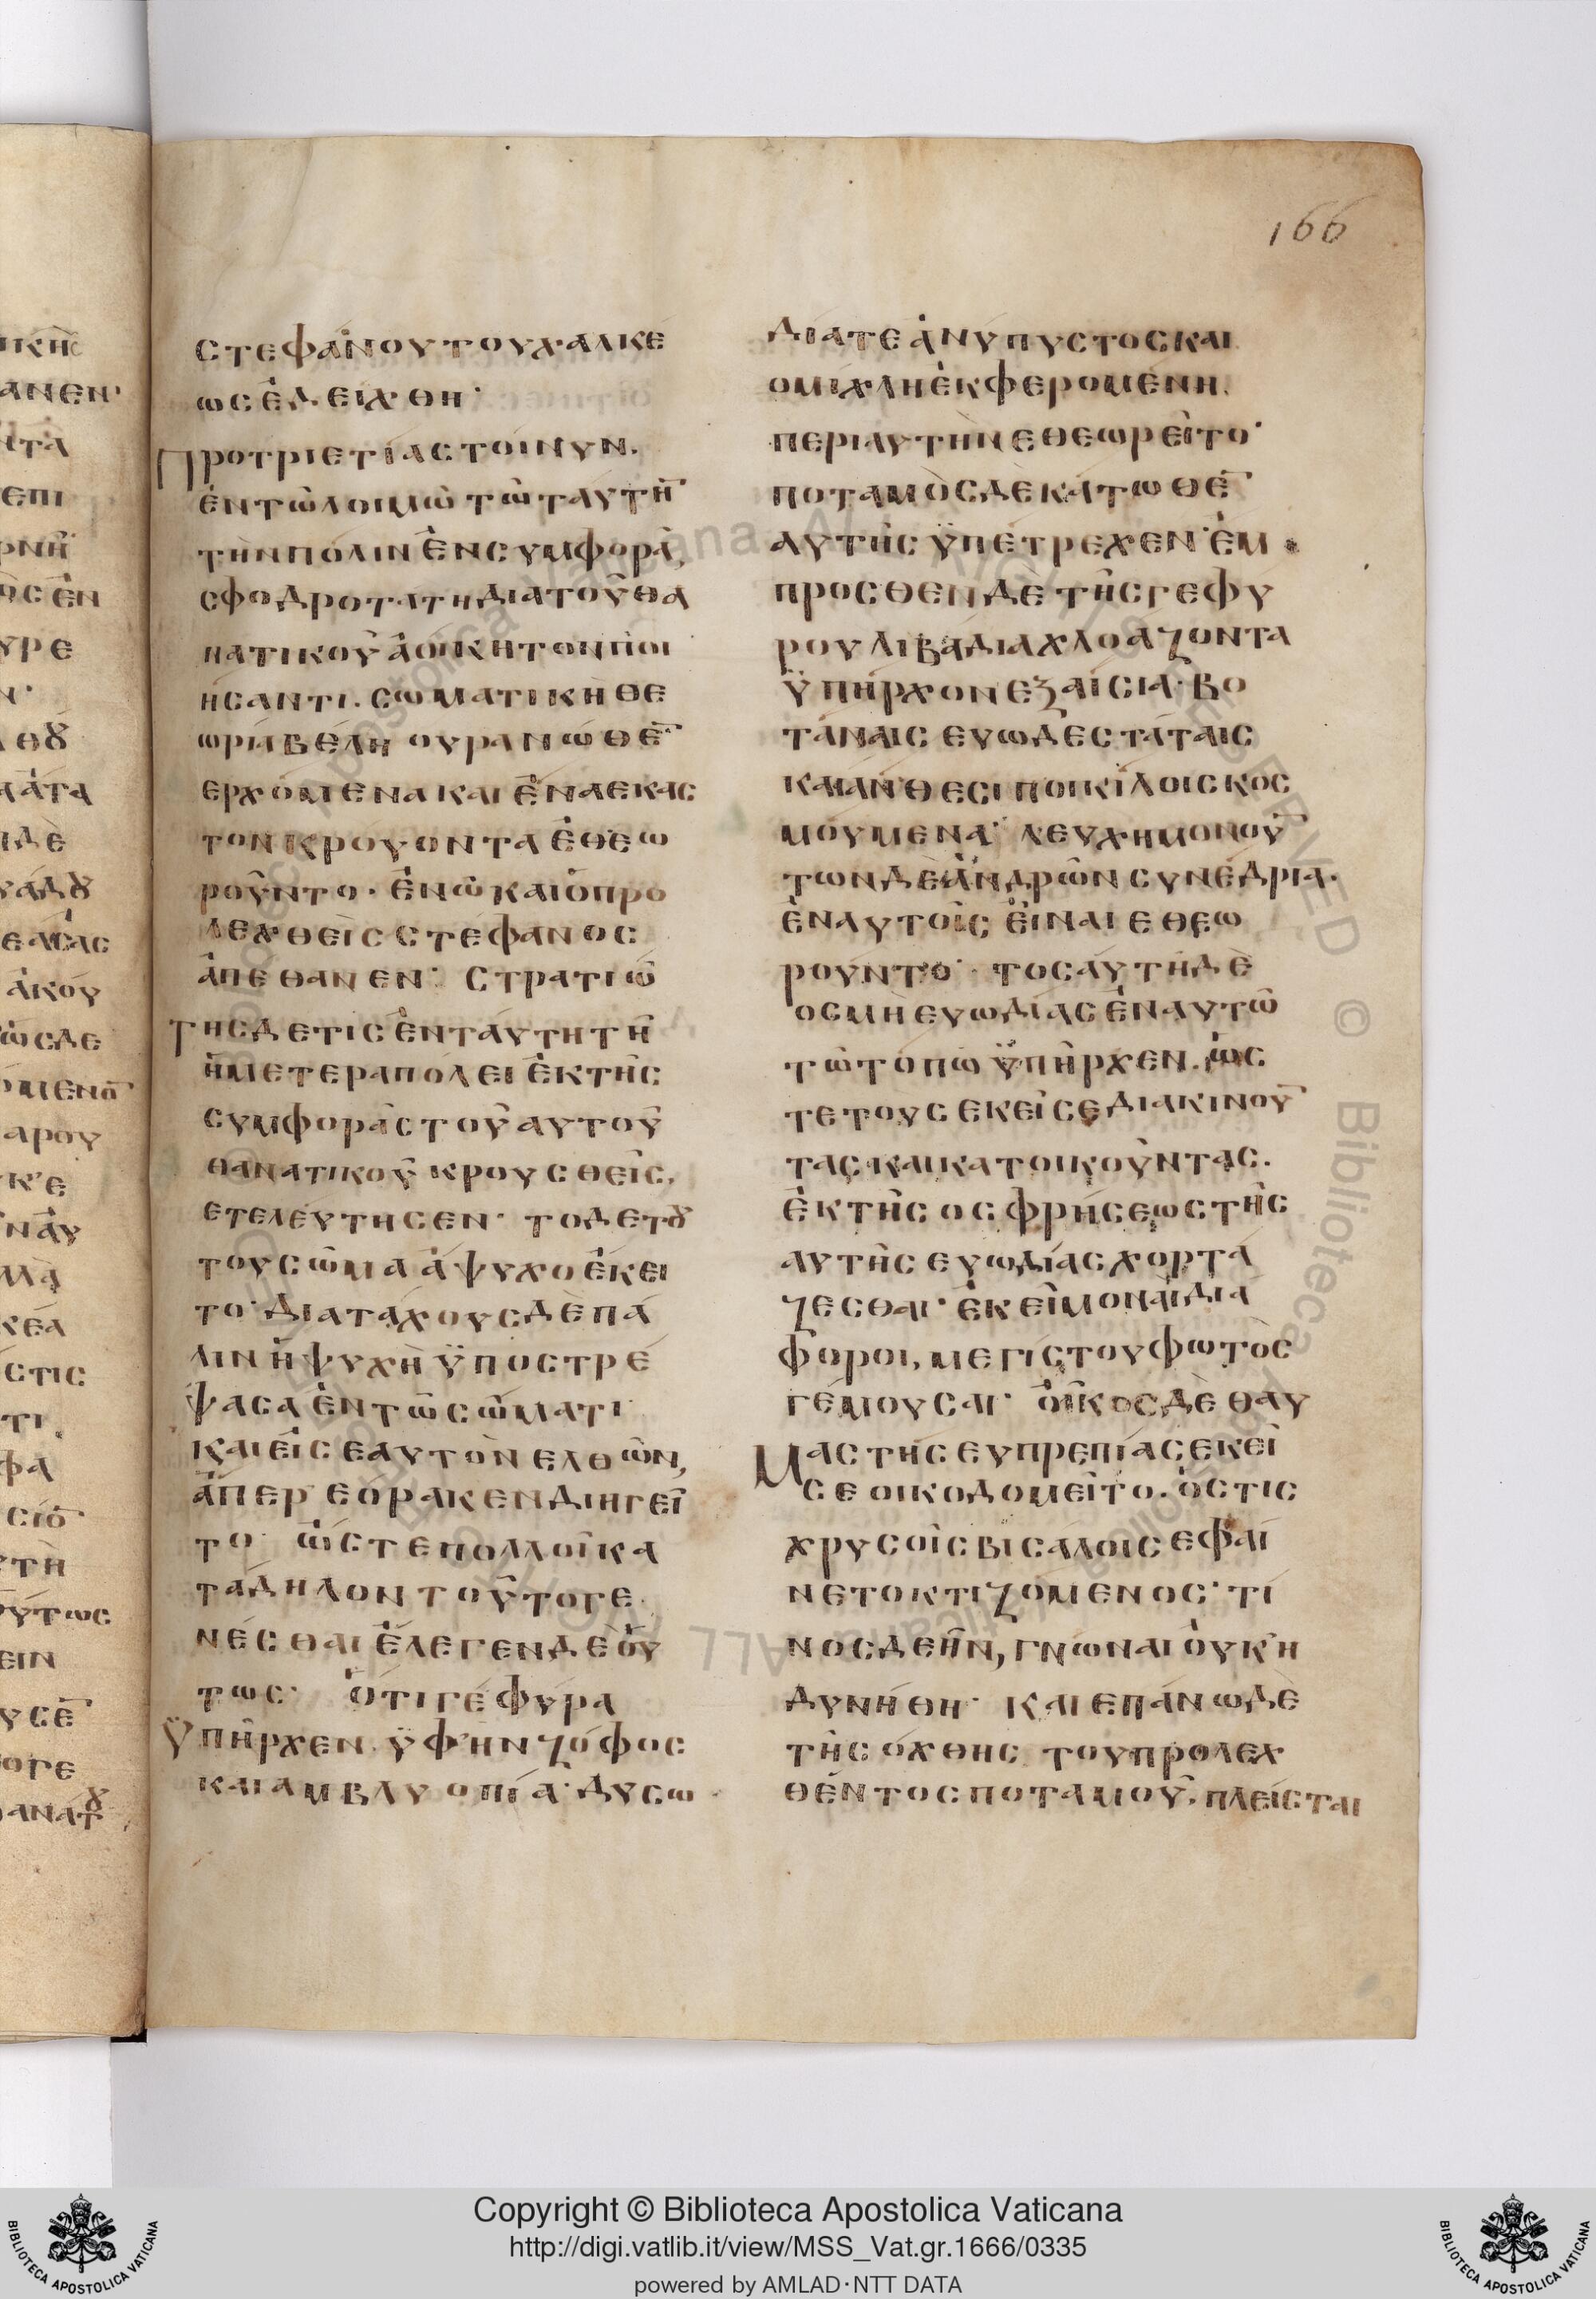 166
ϲτεφάνουτουχαλκέ
ωϲἐδείχθη·
Προτριετίαϲτοίνυν.
ἐντῶλοιμῶτῶταύτη̅
τὴνπόλινἐνϲυμφορᾶ,
ϲφοδροτάτηδιατοῦθα
νατικοῦἀοίκητονποι
ήϲαντι. ϲωματικὴθε
ωρίαβέλη ουρανώθε̅
ερχόμενακαιἐναέκαϲ
τονκρούονταἐθεω
ροῦντο. ἐνῶκαιὁπρο
λεχθεὶϲϲτέφανοϲ
ἀπέθανεν· ϲτρατιώ
τηϲδετιϲἐνταύτητῆ
ἡμετέραπόλειἐκτῆϲ
ϲυμφορᾶϲτοῦαυτοῦ
θανατικοῦκρουϲθεὶϲ,
ετελεύτηϲεν· τοδετȣ
τουϲῶμαἄψυχοἐκει
το· διατάχουϲδὲπά
λινἡψυχὴϋποϲτρέ
ψαϲαἐντῶϲώματι
καιεἰϲεαυτὸνελθὼν,
ἅπερεόρακενδιηγεῖ
το· ὥϲτεπολλοῖϲκα
τάδηλοντοῦτογε
νέϲθαιἔλεγενδὲὅυ
τωϲ· ὅτιγέφυρα
ϋπῆρχεν.ϋφ'ὴνζόφοϲ
καιαμβλυοπία·δυϲω
διάτεἀνύπυϲτοϲκαι
ομίχληἐκφερομένη.
περιαυτὴνεθεωρεῖτο·
ποταμὸϲδὲκάτωθε̅
αυτῆϲϋπέτρεχεν·ἔμ
προϲθενδὲτῆϲγεφύ
ρουλιβάδιαχλοάζοντα
ϋπῆρχονεξαίϲια·βο
τάναιϲευωδεϲτάταιϲ
καιάνθεϲιποικίλοιϲκοϲ
μούμενα· λευχημονού̅
τωνδὲἀνδρῶνϲυνέδρια·
ἐναυτοῖϲεἶναιεθεω
ροῦντο· τοϲαύτηδὲ
οϲμὴευωδίαϲἐναυτῶ
τῶτόπωϋπῆρχεν.ὡϲ
τετουϲεκεῖϲεδιακινοῦ̅
ταϲκαικατοικοῦνταϲ.
ἐκτῆϲοϲφρήϲεωϲτῆϲ
αυτῆϲευωδίαϲχορτά
ζεϲθαι· ἐκεῖμοναὶδιά
φοροι,μεγίϲτουφωτὸϲ
γέμουϲαι· ὅικοϲδὲθαυ
μαϲτῆϲευπρεπίαϲεκεῖ
ϲεοικοδομεῖτο.ὅϲτιϲ
χρυϲοῖϲβιϲάλοιϲεφαί
νετοκτιζόμενοϲ·τί
νοϲδεῆν,γνῶναιὀυκη
δυνήθη· καιεπάνωδὲ
τῆϲόχθηϲ τουπρολεχ
θέντοϲποταμοῦ,πλείϲται
Copyright © Biblioteca Apostolica Vaticana
http://digi.vatlib.it/view/MSS_Vat.gr.1666/0335
powered by AMLAD·NTT DATA